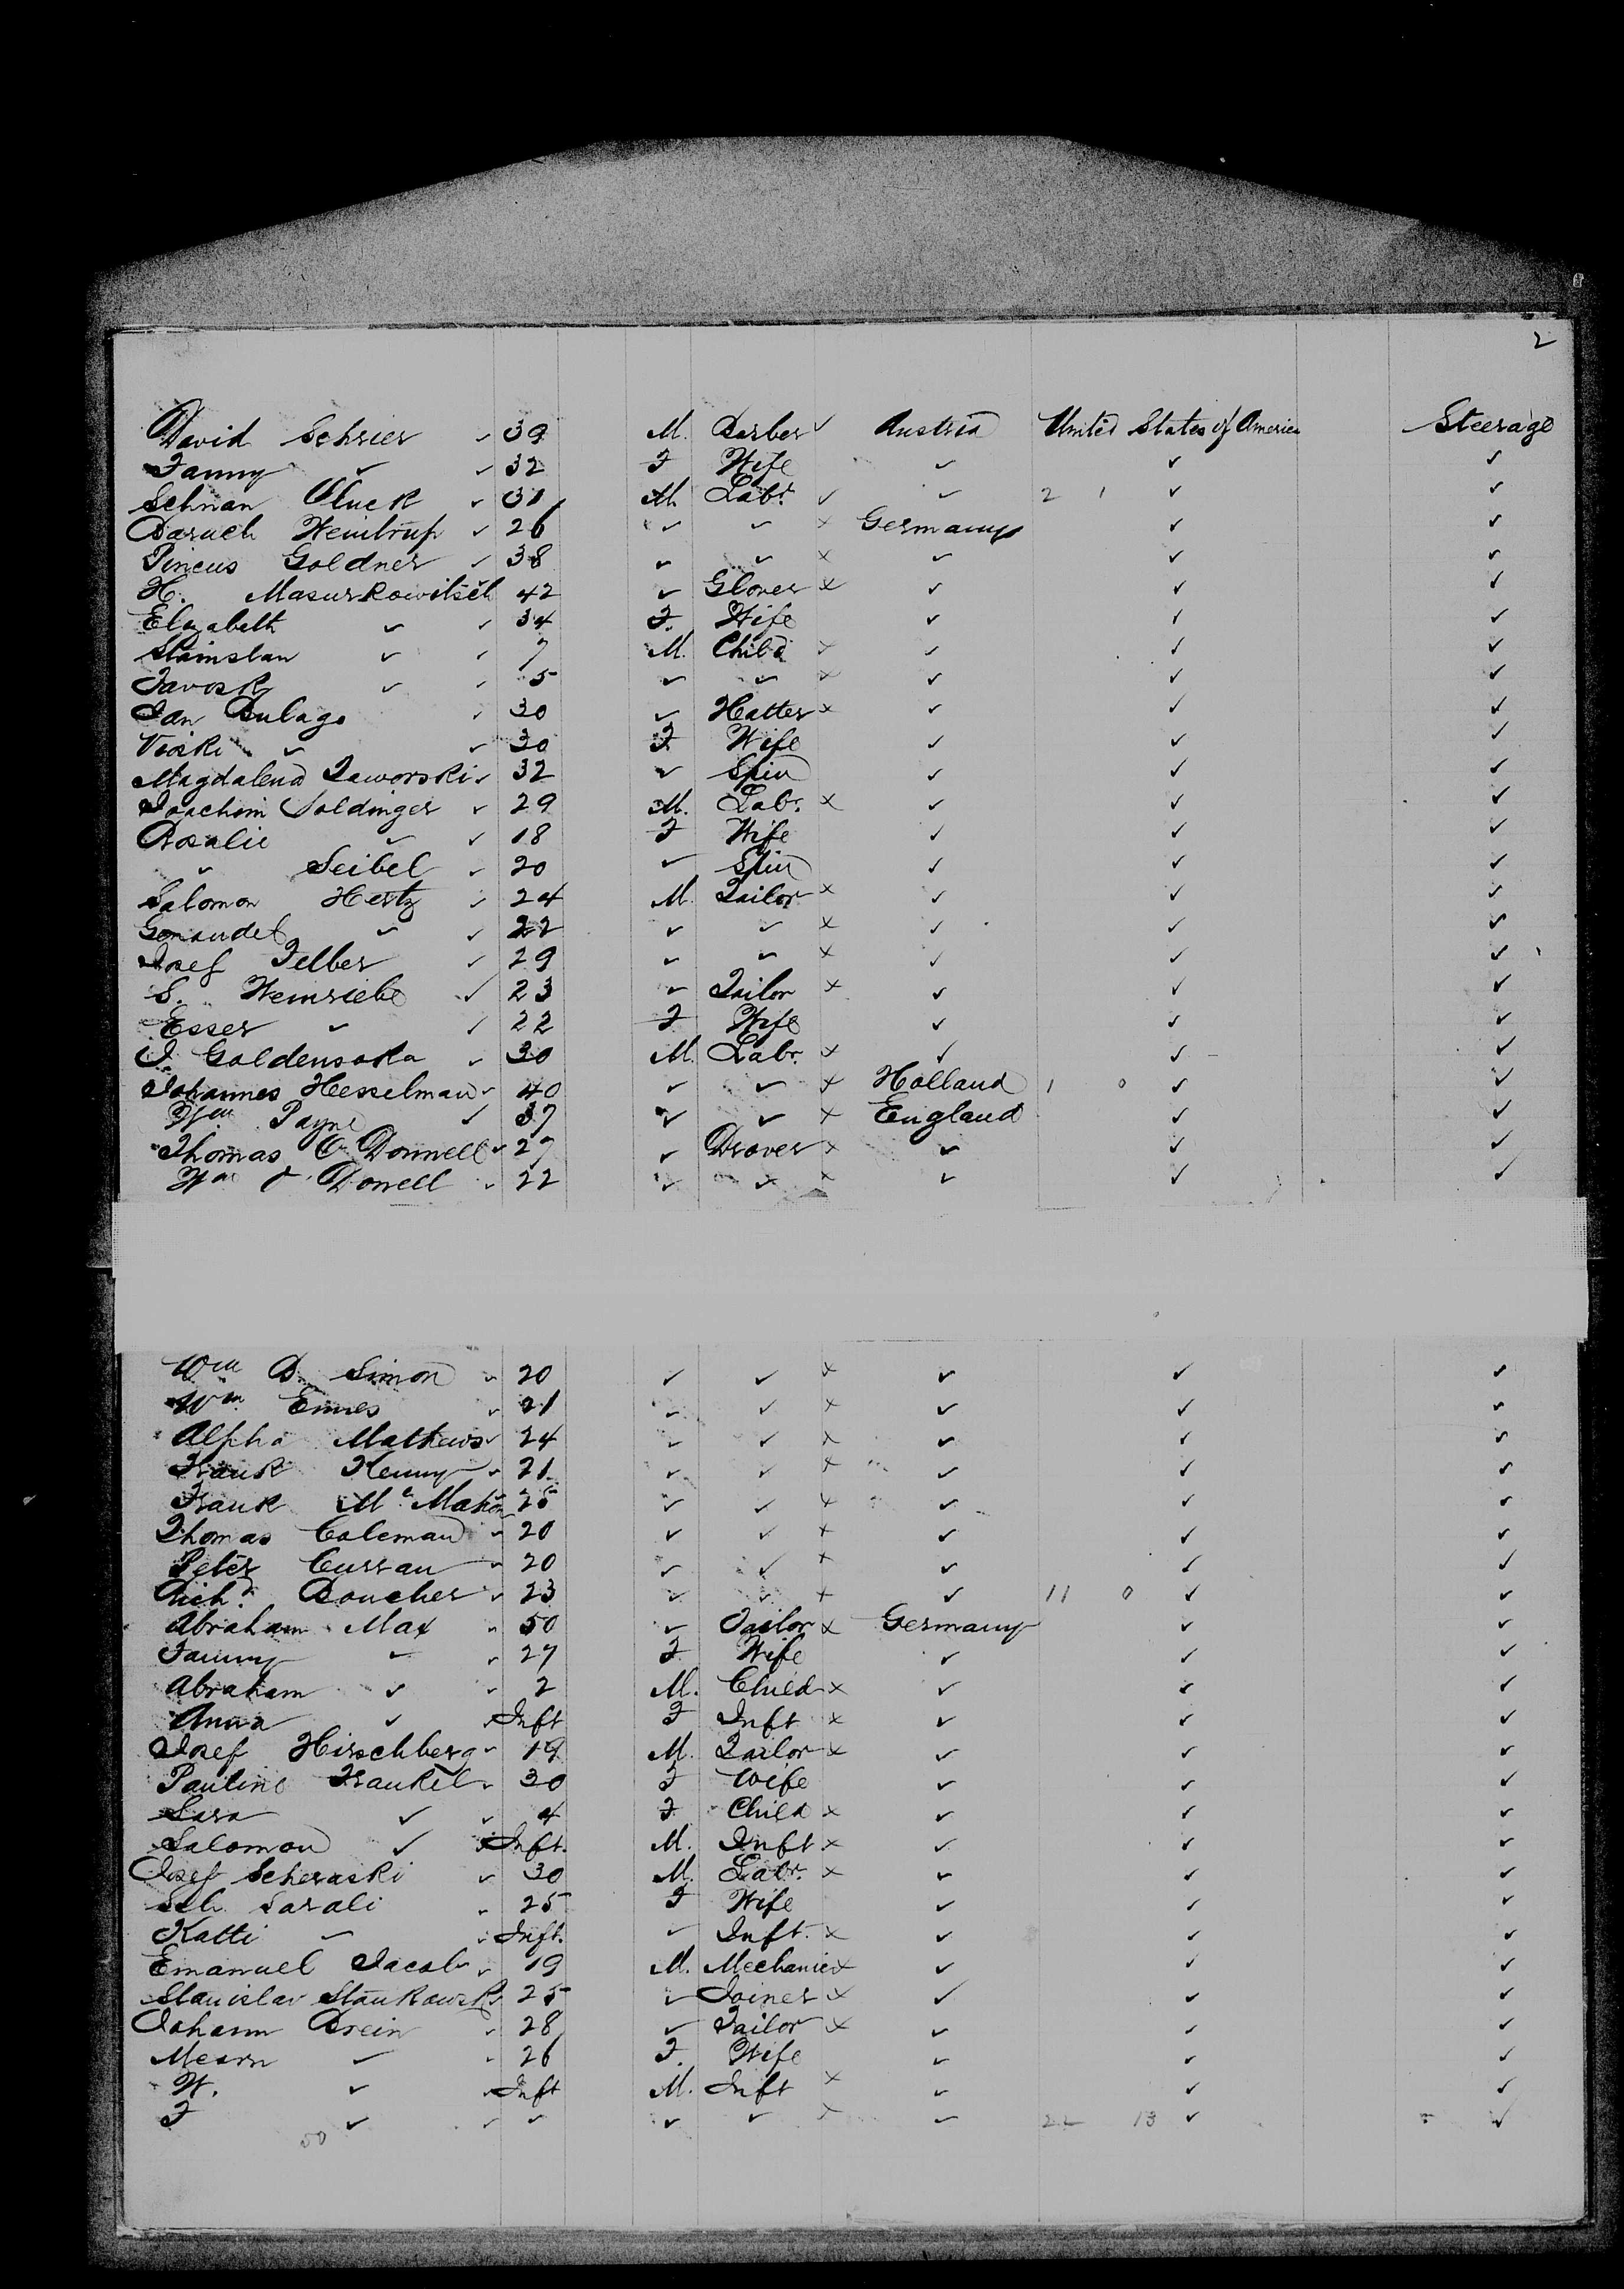 2
David Schrier ✓ 39 M. Barber ✓ Austria United States of America Steerage
Fanny ✓ ✓ 32 F Wife ✓ ✓ ✓
Schnan Gluck ✓ 31 M. Labr. ✓ ✓ 2 1 ✓ ✓
Baruch Weintrup ✓ 26 ✓ ✓ x Germany ✓ ✓
Pincus Goldner ✓ 38 ✓ ✓ x ✓ ✓ ✓
H. Masurkowitsch 42 ✓ Glover x ✓ ✓ ✓
Elizabeth ✓ ✓ 34 F. Wife ✓ ✓ ✓
Stainslan ✓ ✓ 7 M. Child x ✓ ✓ ✓
✓ ✓ 5 ✓ ✓ x ✓ ✓ ✓
Jan Bulago ✓ 30 ✓ Hatter x ✓ ✓ ✓
Vioski ✓ ✓ 30 F Wife ✓ ✓ ✓
Magdalena Jaworski ✓ 32 ✓ Spin ✓ ✓ ✓
Joachim Soldinger ✓ 29 M. Labr. x ✓ ✓ ✓
Rosalie ✓ ✓ 18 F Wife ✓ ✓ ✓
✓ Seibel ✓ 20 ✓ Spin ✓ ✓ ✓
Salomon Hertz ✓ 24 M. Tailor x ✓ ✓ ✓
✓ ✓ 22 ✓ ✓ x ✓ ✓ ✓
Josef Felber ✓ 29 ✓ ✓ x ✓ ✓ ✓
S. Weinriebe ✓ 23 ✓ Tailor x ✓ ✓ ✓
Esser ✓ ✓ 22 F Wife ✓ ✓ ✓
J. Goldensoka ✓ 30 M. Labr. x ✓ ✓ ✓
Johannes Hesselman ✓ 40 ✓ ✓ x Holland 1 0 ✓ ✓
Wm Payne ✓ 37 ✓ ✓ x England ✓ ✓
Thomas O'Donnell ✓ 27 ✓ Drover x ✓ ✓ ✓
Wm O'Donell ✓ 22 ✓ ✓ x ✓ ✓ ✓
Wm D. Simon ✓ 20 ✓ ✓ x ✓ ✓ ✓
Wm Ennes ✓ 21 ✓ ✓ x ✓ ✓ ✓
Alpha Mathews ✓ 24 ✓ ✓ x ✓ ✓ ✓
Frank Kenny ✓ 21 ✓ ✓ x ✓ ✓ ✓
Frank McMahon 25 ✓ ✓ x ✓ ✓ ✓
Thomas Coleman ✓ 20 ✓ ✓ x ✓ ✓ ✓
Peter Curran ✓ 20 ✓ ✓ x ✓ ✓ ✓
Richd. Boucher ✓ 23 ✓ ✓ x ✓ 11 0 ✓ ✓
Abraham Max ✓ 50 ✓ Tailor x Germany ✓ ✓
Fanny ✓ ✓ 27 F Wife ✓ ✓ ✓
Abraham ✓ ✓ 2 M. Child x ✓ ✓ ✓
Anna ✓ ✓ Inft F Inft x ✓ ✓ ✓
Josef Hirschberg ✓ 19 M. Tailor x ✓ ✓ ✓
Pauline Frankel ✓ 30 F Wife ✓ ✓ ✓
Sara ✓ ✓ 4 F Child x ✓ ✓ ✓
Salomon ✓ ✓ Inft. M. Inft. x ✓ ✓ ✓
Josef Scheraski ✓ 30 M. Labr. x ✓ ✓ ✓
Sch. Sarali ✓ 25 F Wife ✓ ✓ ✓
Katti ✓ ✓ Inft. ✓ Inft. x ✓ ✓ ✓
Emanuel Jacob ✓ 19 M. Mechanic x ✓ ✓ ✓
Stanislav Stankowski 25 ✓ Joiner x ✓ ✓ ✓
Johann Brein ✓ 28 ✓ Tailor x ✓ ✓ ✓
Mearn ✓ ✓ 26 F. Wife ✓ ✓ ✓
W. ✓ ✓ Inft M. Inft x ✓ ✓ ✓
F ✓ ✓ ✓ ✓ ✓ x ✓ 22 13 ✓ ✓
50